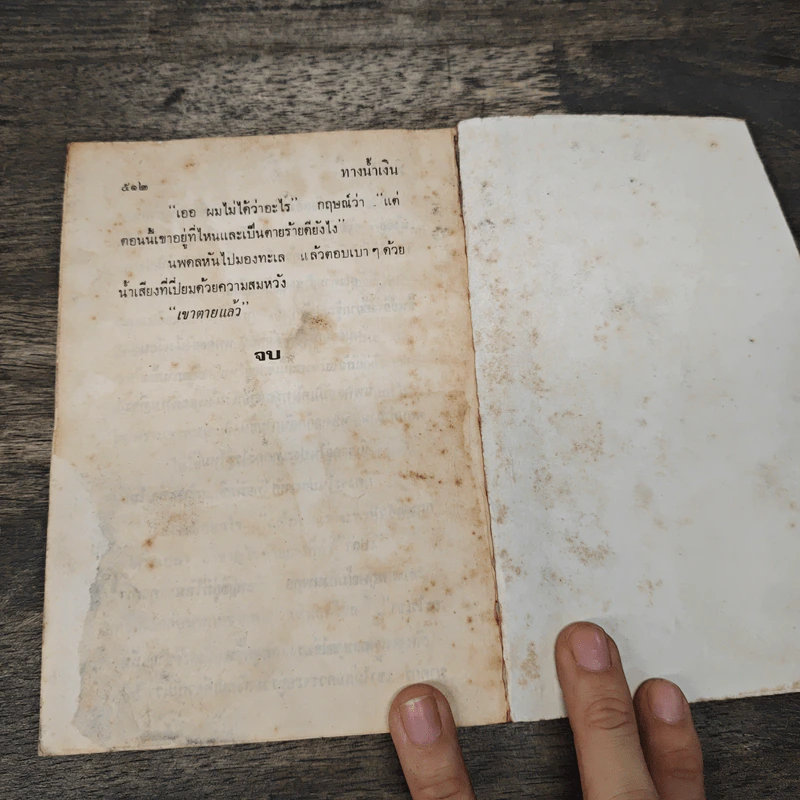 ๕๑๒
ทางน้ำเงิน
"เออ ผมไม่ได้ว่าอะไร" กฤษณ์ว่า "แต่
ตอนนี้เขาอยู่ที่ไหนและเป็นตายร้ายดียังไง"
นพดลหันไปมองทะเล แล้วตอบเบา ๆ ด้วย
น้ำเสียงที่เปี่ยมด้วยความสมหวัง
"เขาตายแล้ว"
จบ